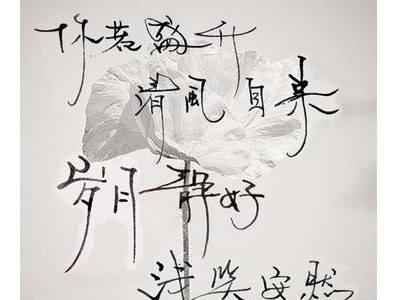 你若盛开
清风自来
岁月静好
浅笑安然